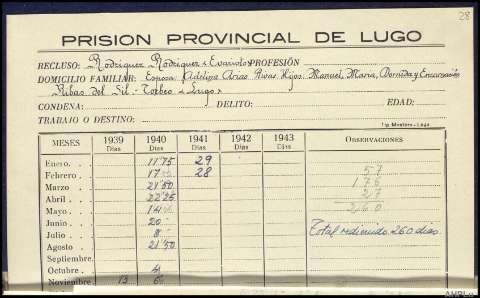 28
PRISION PROVINCIAL DE LUGO
RECLUSO: Rodriguez Rodriguez «Evaristo» PROFESIÓN
DOMICILIO FAMILIAR: Esposa: Adelina Arias Rivas. Hijos: Manuel, Maria, Dornida y Encarnación
Ribas del Sil - Torbeo «Lugo»
CONDENA: DELITO: EDAD:
TRABAJO O DESTINO:
Tip. Montero.-Lugo
MESES 1939 Días 1940 Días 1941 Días 1942 Días 1943 Días OBSERVACIONES
Enero. . . 11'75 29
Febrero . . 17 28 57
Marzo . . 21'50 176
Abril. . . 22'25 27
Mayo. . . 14 260
Junio. . . 20
Julio. . . 8 Total redimido 260 dias.
Agosto . . 21'50
Septiembre.
Octubre . . 4
Noviembre 13 6
AHPLu